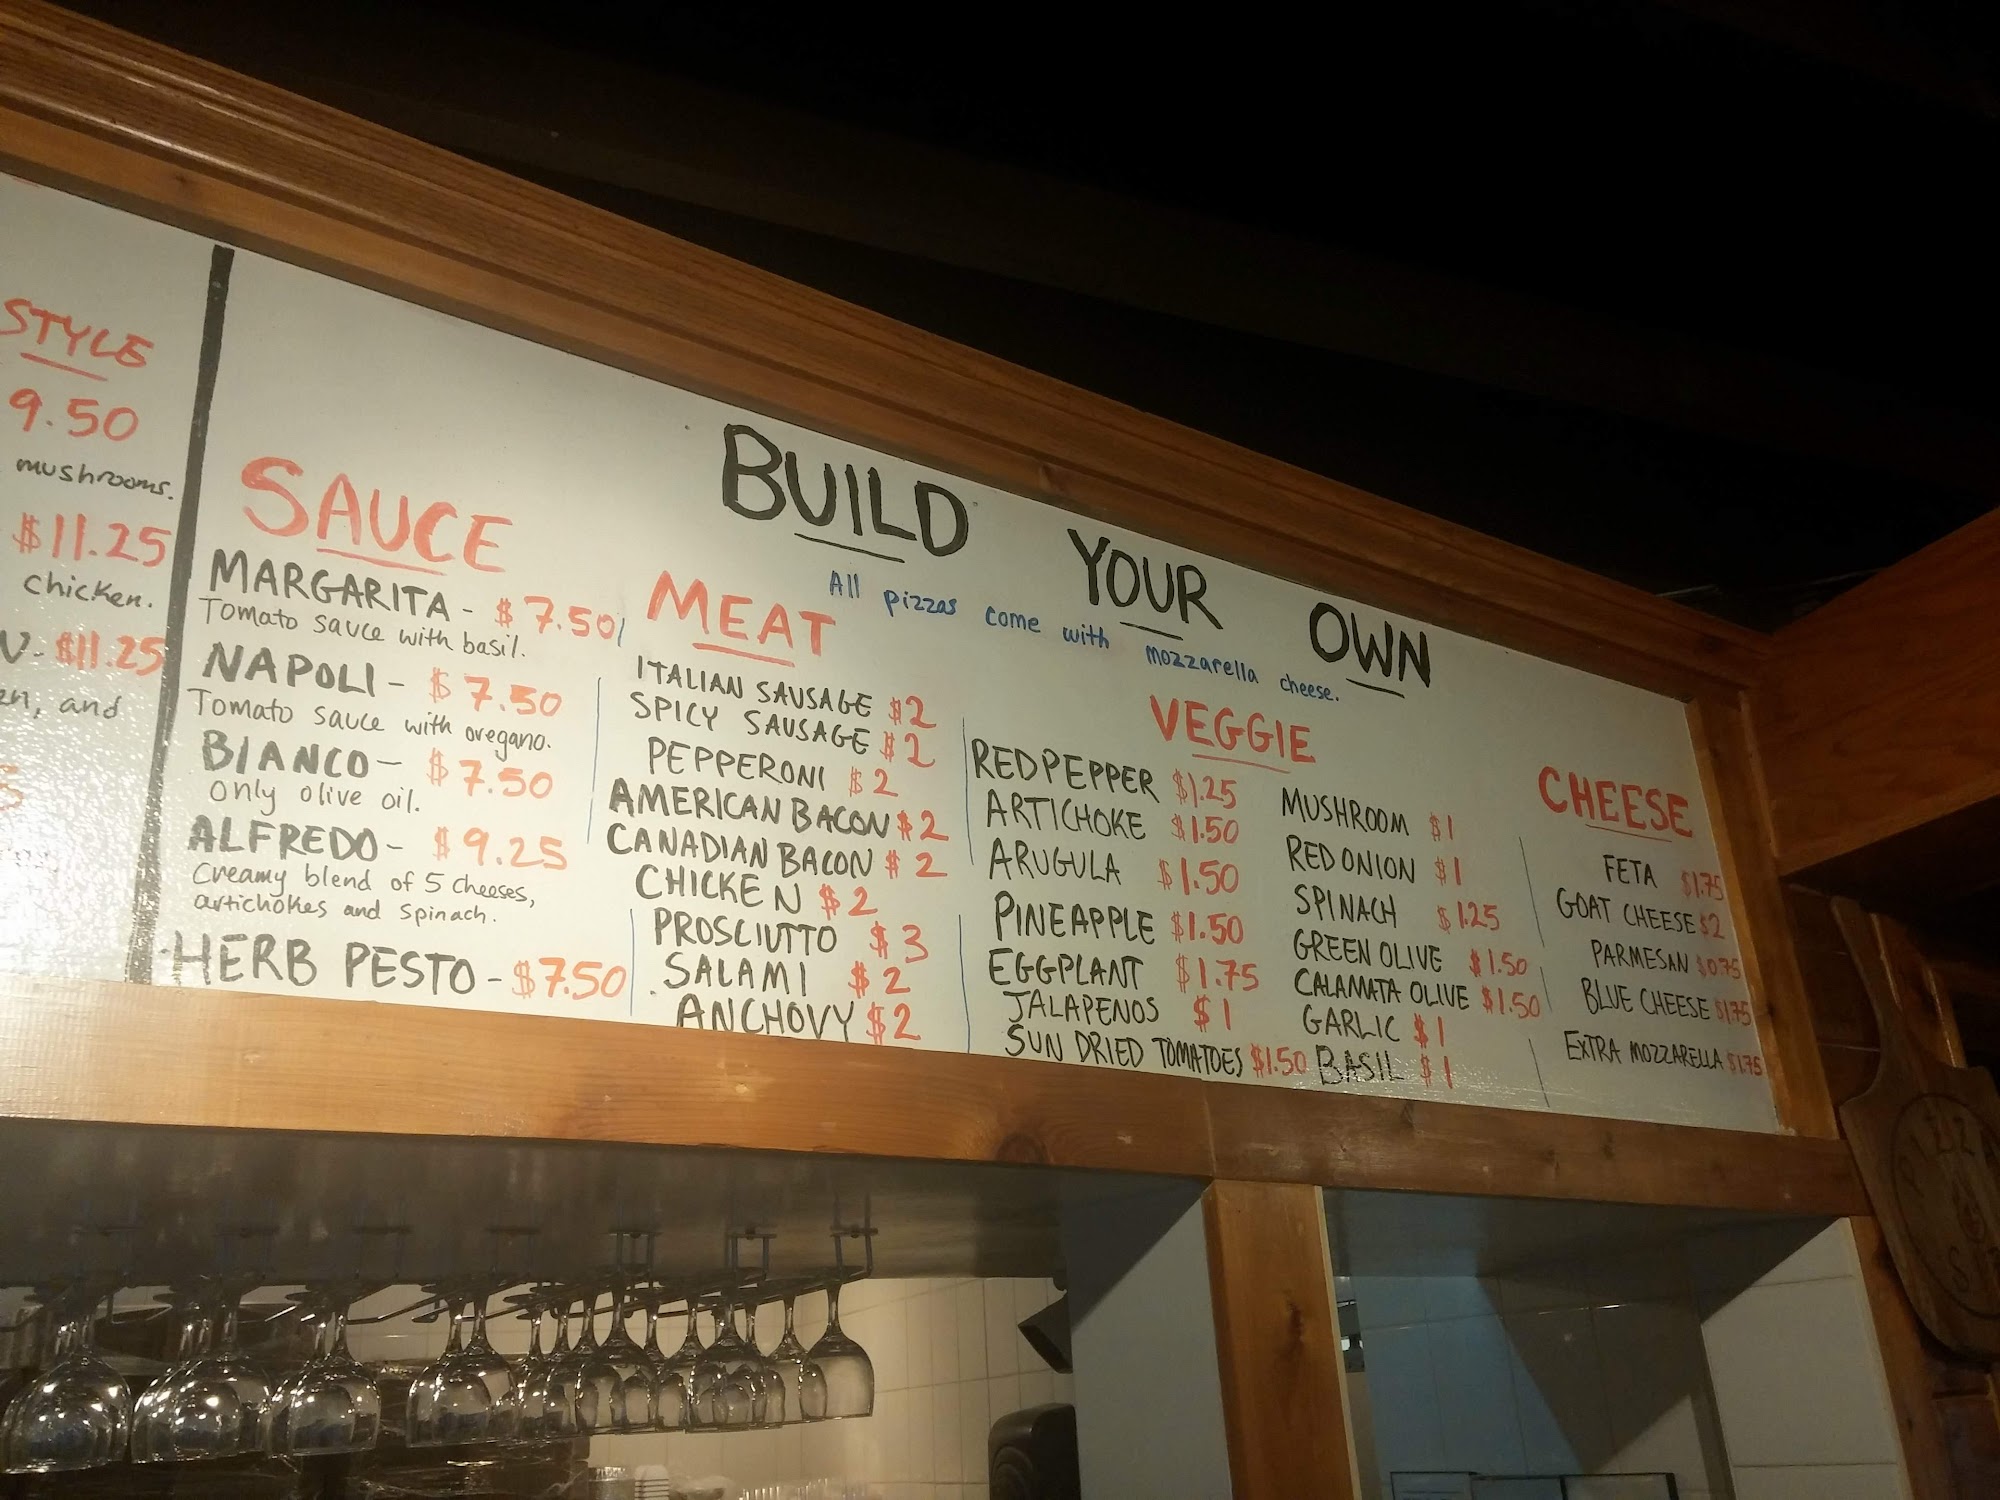 STYLE
9.50
mushrooms.
$11.25
chicken.
$11.25
and
BUILD YOUR OWN
All pizzas come with mozzarella cheese.
SAUCE
MARGARITA - $7.50
Tomato sauce with basil.
NAPOLI - $7.50
Tomato sauce with oregano.
BIANCO - $7.50
only olive oil.
ALFREDO - $9.25
Creamy blend of 5 cheeses,
artichokes and spinach.
HERB PESTO - $7.50
MEAT
ITALIAN SAUSAGE $2
SPICY SAUSAGE $2
PEPPERONI $2
AMERICAN BACON $2
CANADIAN BACON $2
CHICKEN $2
PROSCIUTTO $3
SALAMI $2
ANCHOVY $2
VEGGIE
RED PEPPER $1.25
ARTICHOKE $1.50
ARUGULA $1.50
PINEAPPLE $1.50
EGGPLANT $1.75
JALAPENOS $1
SUN DRIED TOMATOES $1.50
MUSHROOM $1
RED ONION $1
SPINACH $1.25
GREEN OLIVE $1.50
CALAMATA OLIVE $1.50
GARLIC $1
BASIL $1
CHEESE
FETA $1.75
GOAT CHEESE $2
PARMESAN $0.75
BLUE CHEESE $1.75
EXTRA MOZZARELLA $1.75
PIZZA